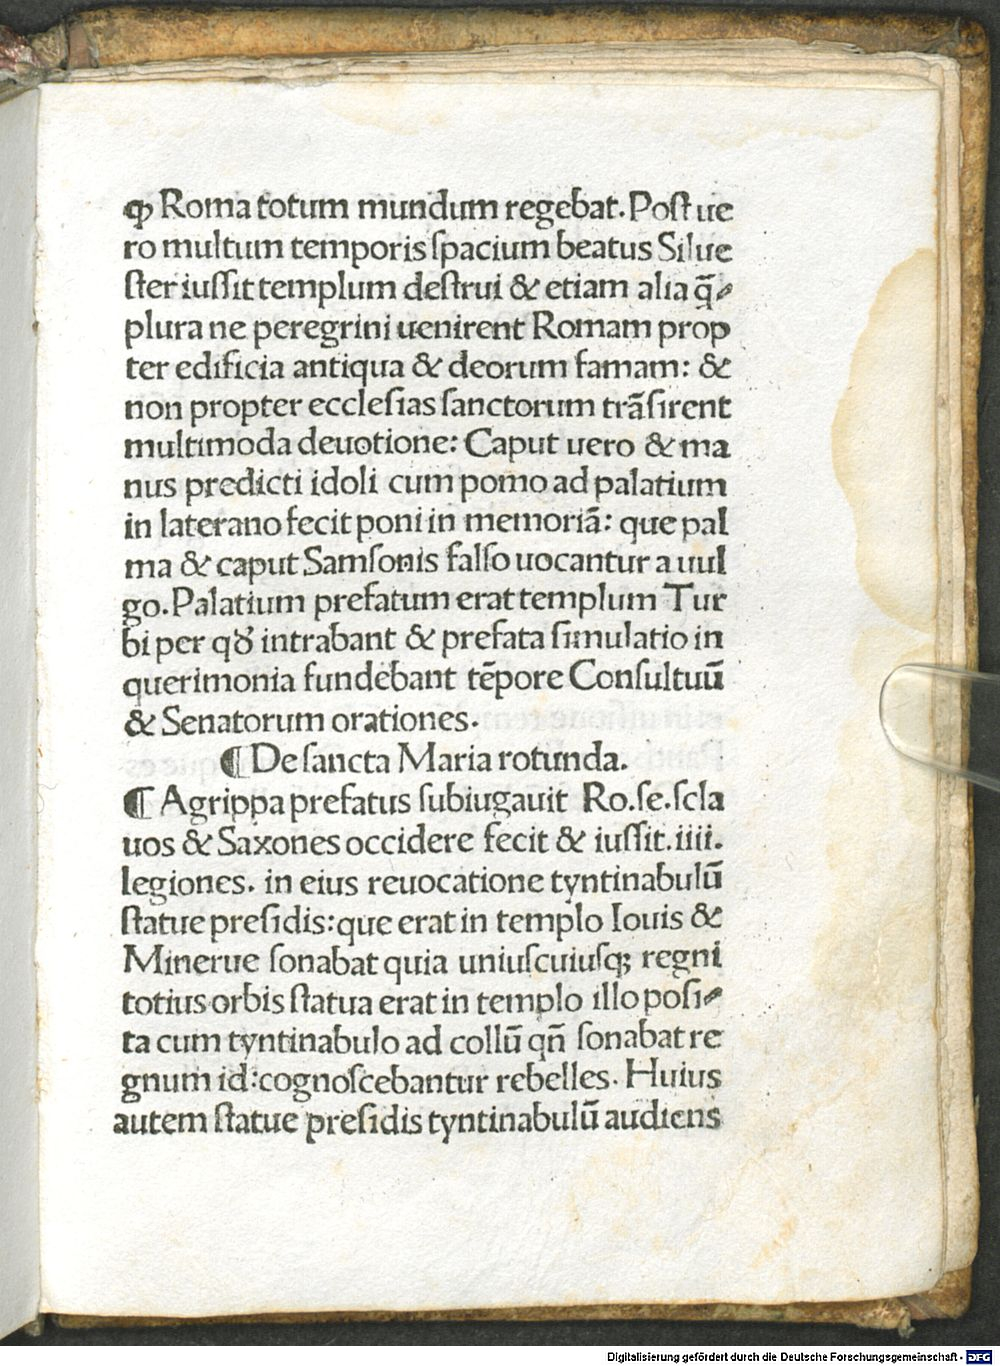 ꝙ Roma totum mundum regebat. Poſt ue
ro multum temporis ſpacium beatus Silue
ſter iuſſit templum deſtrui & etiam alia q̃⸗
plura ne peregrini uenirent Romam prop
ter edificia antiqua & deorum famam: &
non propter eccleſias ſanctorum trãſirent
multimoda deuotione: Caput uero & ma
nus predicti idoli cum pomo ad palatium
in laterano fecit poni in memoriã: que pal
ma & caput Samſonis falſo uocantur a uul
go. Palatium prefatum erat templum Tur
bi per qđ intrabant & prefata ſimulatio in
querimonia fundebant tẽpore Conſultuũ
& Senatorum orationes.
¶ De ſancta Maria rotunda.
¶ Agrippa prefatus ſubiugauit Ro. ſe. ſcla
uos & Saxones occidere fecit & iuſſit. iiii.
legiones. in eius reuocatione tyntinabulũ
ſtatue preſidis: que erat in templo Iouis &
Minerue ſonabat quia uniuſcuiuſq; regni
totius orbis ſtatua erat in templo illo poſi⸗
ta cum tyntinabulo ad collũ qñ ſonabat re
gnum id: cognoſcebantur rebelles. Huius
autem ſtatue preſidis tyntinabulũ audiens
Digitalisierung gefördert durch die Deutsche Forschungsgemeinschaft - DFG